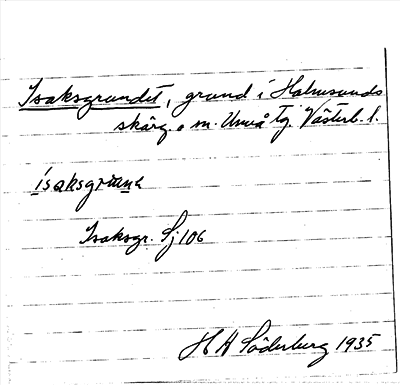 Isaksgrundet, grund i Holmsunds
skärg. o m. Umeå tg. Västerb. l.
ísaksgruna
Isaksgr. Sj 106
H A Söderberg 1935